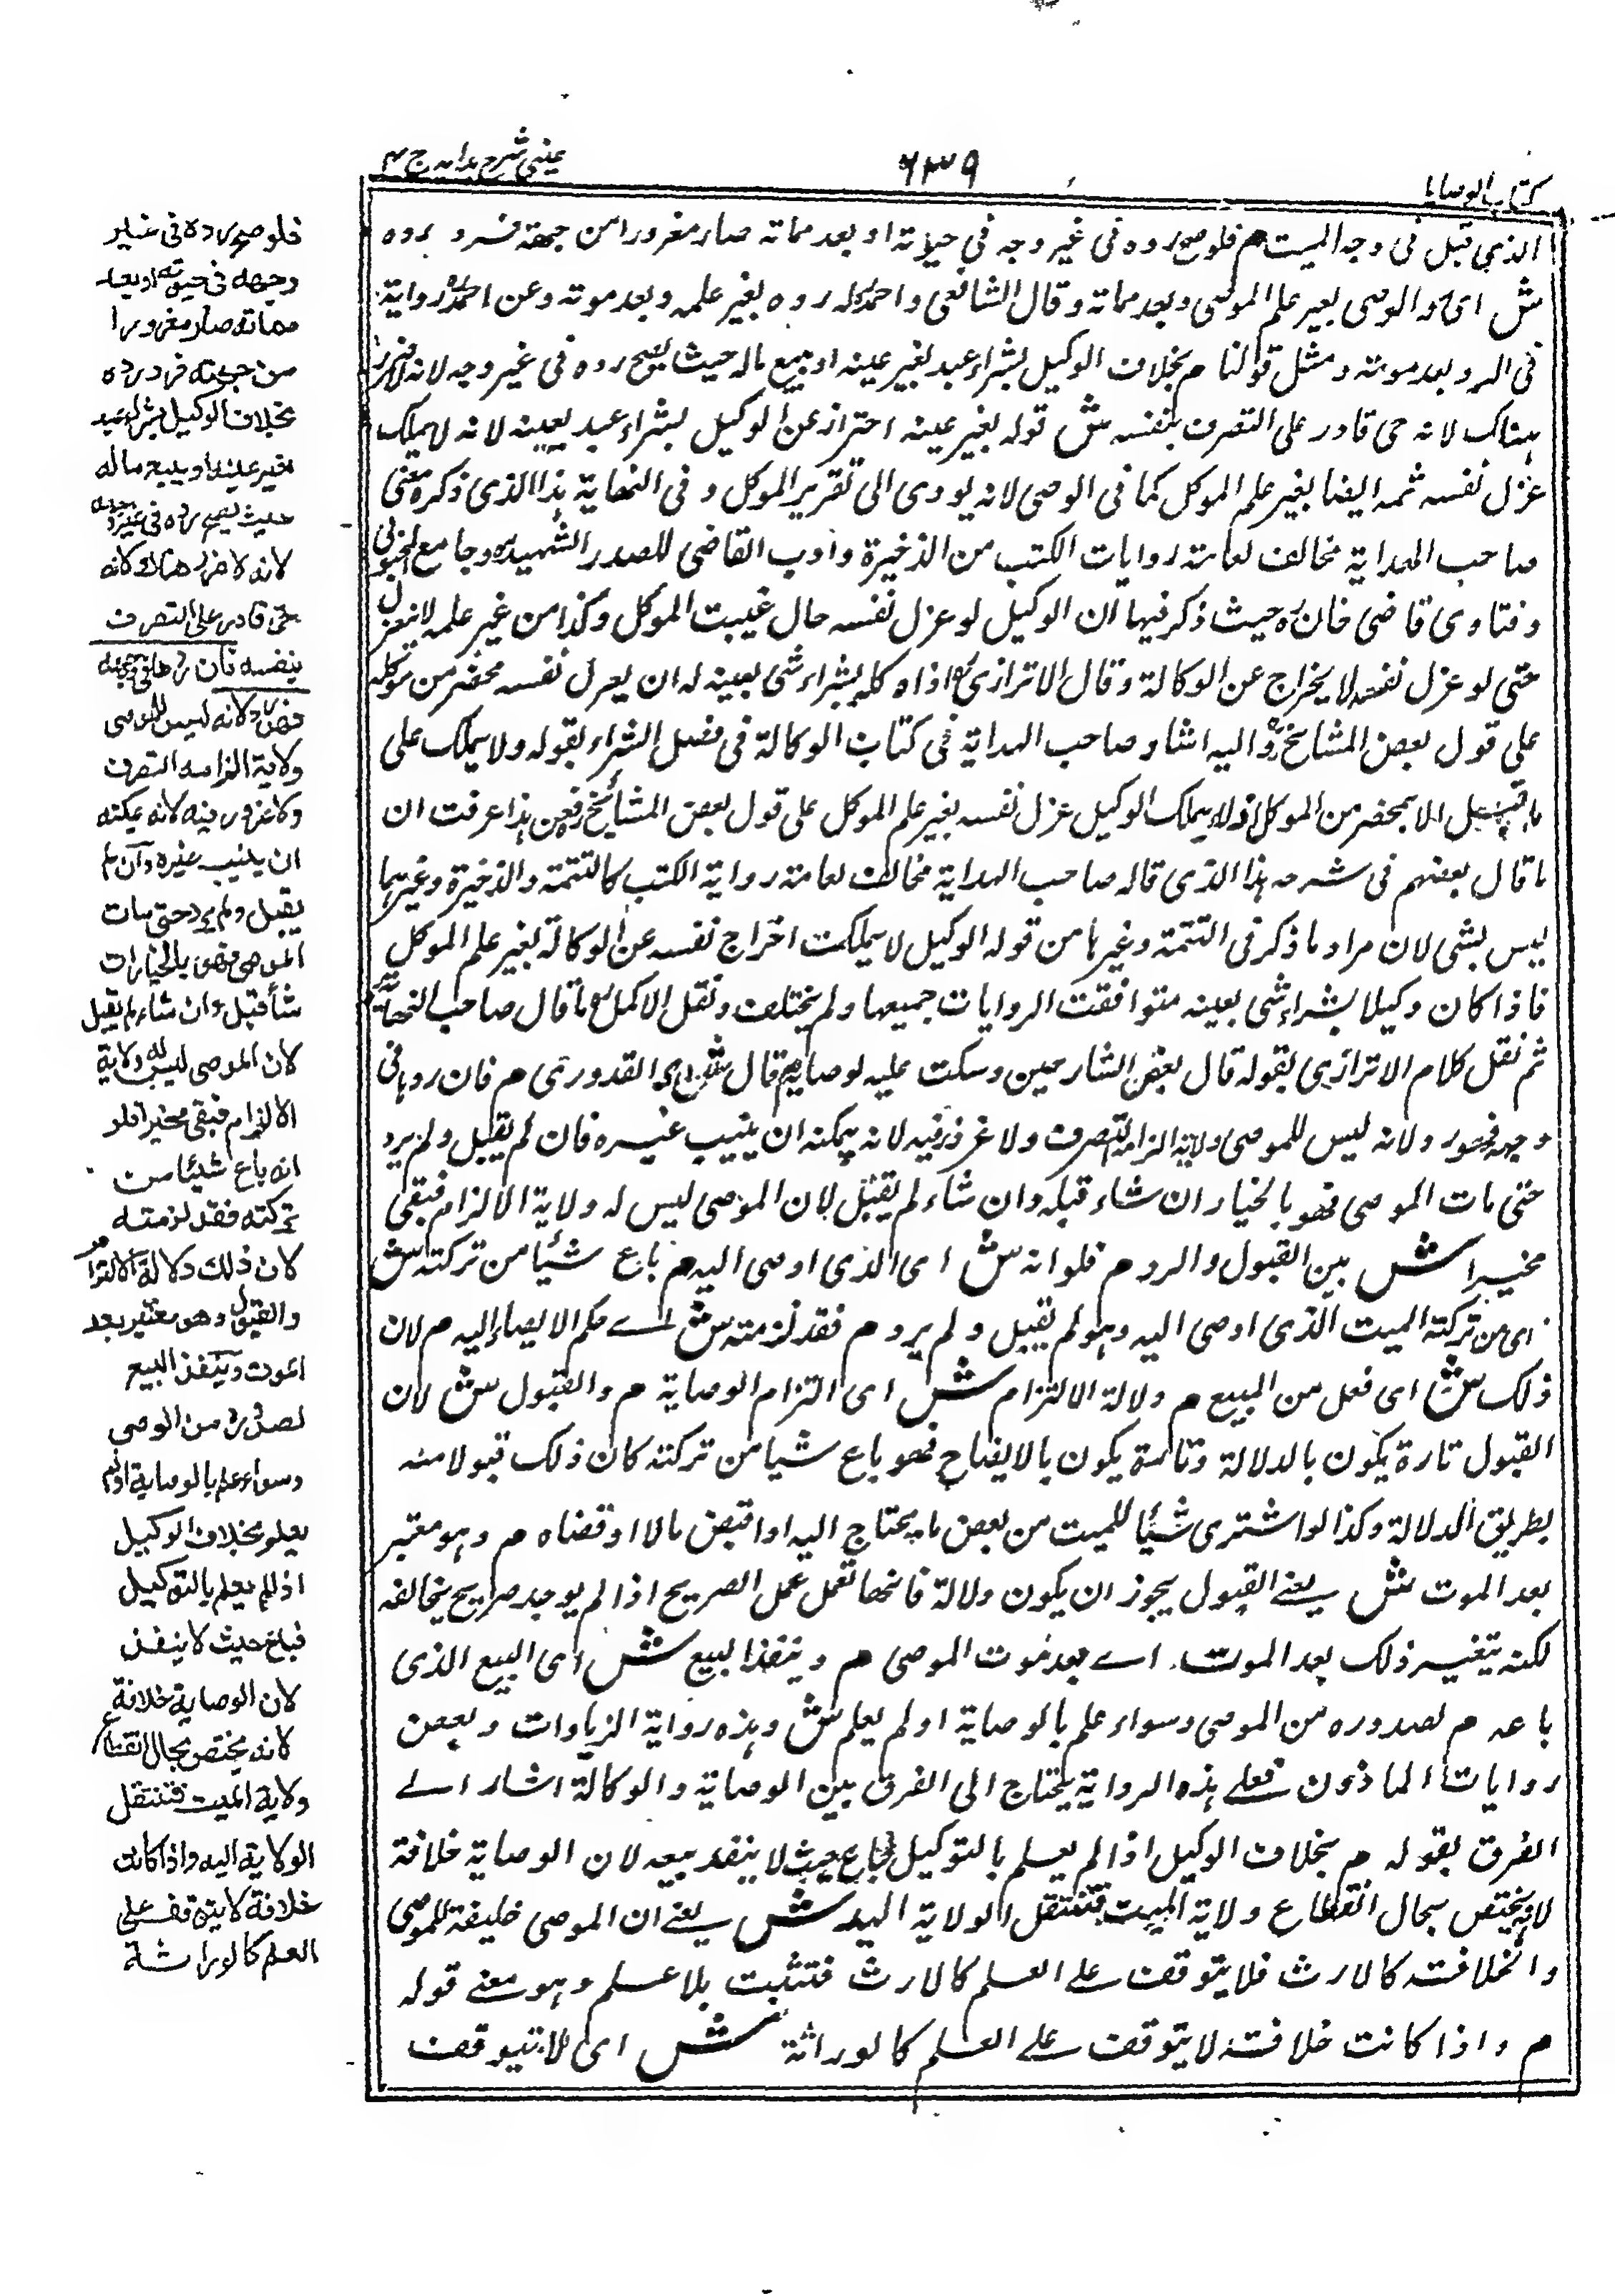 كتاب الوصايا
٦٣٩
عيني شرح هدايه ج ٤
الذي قبل في وجه الميت م فلو صح رده في غير وجه في حياته او بعد مماته صار مغرورا من جهته فرد رده
ش اي رد الوصي بغير علم الموصي وبعد مماته وقال الشافعي واحمد له رده بغير علمه وبعد موته وعن احمد رواية
في الرد بعد موته ومثل قولنا م بخلاف الوكيل بشراء عبد بغير عينه او ببيع ماله حيث يصح رده في غير وجه لانه لا ضرر
هناك لانه حي قادر على التصرف بنفسه ش قوله بغير عينه احتراز عن الوكيل بشراء عبد بعينه لانه لا يملك
عزل نفسه ثمه ايضا بغير علم الموكل كما في الوصي لانه يودي الى تقرير الموكل وفي النهاية هذا الذي ذكره معنى
صاحب الهداية مخالف لعامة روايات الكتب من الذخيرة وادب القاضي للصدر الشهيد وجامع المحبوبي
وفتاوى قاضي خان حيث ذكر فيها ان الوكيل لو عزل نفسه حال غيبت الموكل وكذا من غير علمه لا ينعزل
حتى لو عزل نفسه لا يخرج عن الوكالة وقال الاترازي اذا وكله بشراء شى بعينه له ان يعزل نفسه بمحضر من موكله
على قول بعض المشايخ واليه اشار صاحب الهداية في كتاب الوكالة في فصل الشراء بقوله ولا يملك على
ما قيل الا بمحضر من الموكل ولا يملك الوكيل عزل نفسه بغير علم الموكل على قول بعض المشايخ فعن هذا عرفت ان
ما قال بعضهم في شرحه هذا الذي قاله صاحب الهداية مخالف لعامة رواية الكتب كالتتمة والذخيرة وغيرهما
ليس بشى لان مراد ما ذكر في التتمة وغيرها من قوله الوكيل لا يملك اخراج نفسه عن الوكالة بغير علم الموكل
فاذا كان وكيلا بشراء شى بعينه متوافقت الروايات جميعها ولم يختلف ونقل الاكمل ما قال صاحب النهاية
ثم نقل كلام الاترازي بقوله قال بعض الشارحين وسكت عليه لوصايه م قال ش اي القدوري م فان ردها في
وجهه فهو رد لانه ليس للموصي ولاية الزامه التصرف ولا غرور فيه لانه يمكنه ان ينيب غيره فان لم يقبل ولم يرد
حتى مات الموصي فهو بالخيار ان شاء قبله وان شاء لم يقبل لان الموصي ليس له ولاية الالزام فبقي
مخيرا ش بين القبول والرد م فلو انه ش اي الذي اوصى اليه م باع شيئا من تركته ش
اي من تركته الميت الذي اوصى اليه وهو لم يقبل ولم يرد م فقد لزمته ش اے حكم الايصاء اليه م لان
ذلك ش اي فعل من البيع م دلالة الالتزام ش اي التزام الوصاية م والقبول ش لان
القبول تارة يكون بالدلالة وتارة يكون بالايضاح فهو باع شيا من تركته كان ذلك قبولا منه
بطريق الدلالة وكذا لو اشترى شيئا للميت من بعض ما يحتاج اليه او اقتبض مالا او قضاه م وهو معتبر
بعد الموت ش يعنے القبول يجوز ان يكون دلالة فانها تعمل عمل الصريح اذا لم يوجد صريح يخالفه
لكنه يتغير ذلك بعد الموت اے بعد موت الموصي م وينفذ البيع ش اي البيع الذي
باعه م لصدوره من الموصي وسواء علم بالوصاية او لم يعلم ش وهذه رواية الزيادات وبعض
روايات الماذون فعلے هذه الرواية يحتاج الى الفرق بين الوصاية والوكالة اشار اے
الفرق بقوله م بخلاف الوكيل اذا لم يعلم بالتوكيل فباع حيث لا ينفذ بيعه لان الوصاية خلافة
لانه يختص بحال انقطاع ولاية الميت فتنتقل الولاية اليه ش يعنے ان الموصي خليفة للموصي
والخلافة كالارث فلا يتوقف علے العلم كالارث فتثبت بلا علم وهو معنے قوله
م واذا كانت خلافة لا يتوقف علے العلم كالوراثة ش اي لا يتوقف
فلو صح رده في غير
وجهه في حيوته او بعد
مماته صار مغرورا
من جهته فرد رده
بخلاف الوكيل بشراء عبد
بغير عينه او ببيع ماله
حيث يصح رده في غير وجهه
لانه لا ضرر هناك لانه
حي قادر على التصرف
بنفسه فان ردها في وجهه
فهو رد لانه ليس للموصي
ولاية الزامه التصرف
ولا غرور فيه لانه يمكنه
ان ينيب غيره وان لم
يقبل ولم يرد حتى مات
الموصي فهو بالخيار ان
شأ قبل وان شاء لم يقبل
لان الموصي ليس له ولاية
الالزام فبقي مخيرا فلو
انه باع شيئا من
تركته فقد لزمته
لان ذلك دلالة الالتزام
والقبول وهو معتبر بعد
الموت وينفذ البيع
لصدوره من الوصي
وسواء علم بالوصاية او لم
يعلم بخلاف الوكيل
اذا لم يعلم بالتوكيل
فباع حيث لا ينفذ
لان الوصاية خلافة
لانه يختص بحال انقطاع
ولاية الميت فتنتقل
الولاية اليه واذا كانت
خلافة لا يتوقف على
العلم كالوراثة